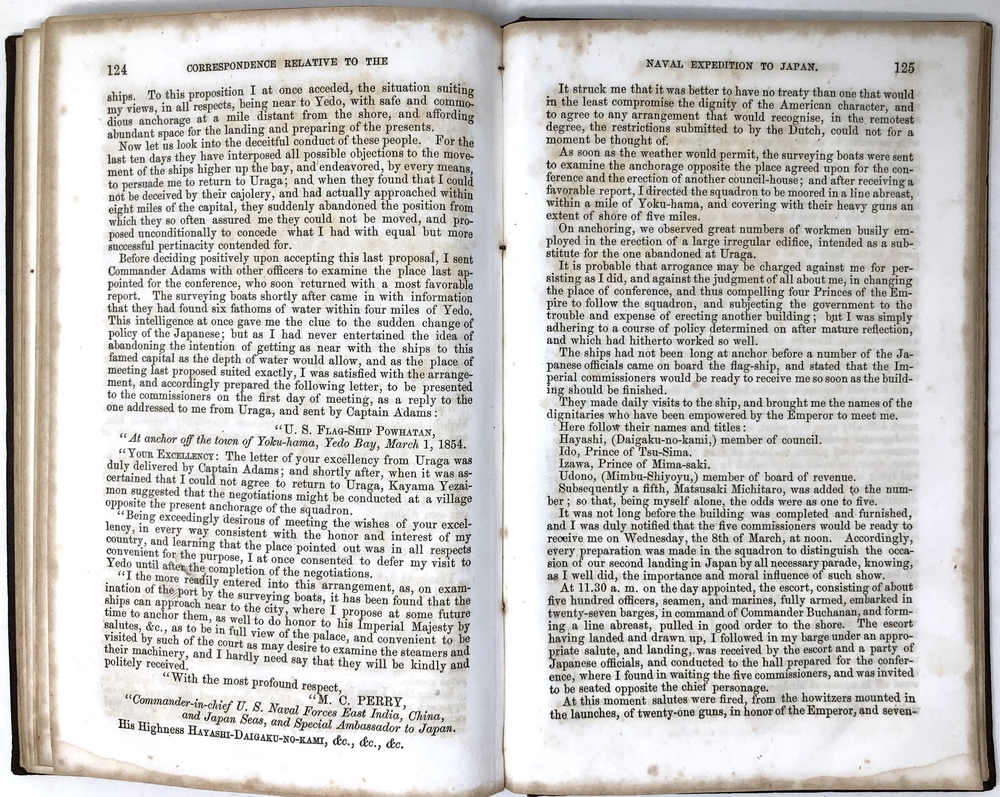 124
CORRESPONDENCE RELATIVE TO THE
ships. To this proposition I at once acceded, the situation suiting
my views, in all respects, being near to Yedo, with safe and commo-
dious anchorage at a mile distant from the shore, and affording
abundant space for the landing and preparing of the presents.
Now let us look into the deceitful conduct of these people. For the
last ten days they have interposed all possible objections to the move-
ment of the ships higher up the bay, and endeavored, by every means,
to persuade me to return to Uraga; and when they found that I could
not be deceived by their cajolery, and had actually approached within
eight miles of the capital, they suddenly abandoned the position from
which they so often assured me they could not be moved, and pro-
posed unconditionally to concede what I had with equal but more
successful pertinacity contended for.
Before deciding positively upon accepting this last proposal, I sent
Commander Adams with other officers to examine the place last ap-
pointed for the conference, who soon returned with a most favorable
report. The surveying boats shortly after came in with information
that they had found six fathoms of water within four miles of Yedo.
This intelligence at once gave me the clue to the sudden change of
policy of the Japanese; but as I had never entertained the idea of
abandoning the intention of getting as near with the ships to this
famed capital as the depth of water would allow, and as the place of
meeting last proposed suited exactly, I was satisfied with the arrange-
ment, and accordingly prepared the following letter, to be presented
to the commissioners on the first day of meeting, as a reply to the
one addressed to me from Uraga, and sent by Captain Adams:
"U. S. FLAG-SHIP POWHATAN,
"At anchor off the town of Yoku-hama, Yedo Bay, March 1, 1854.
"YOUR EXCELLENCY: The letter of your excellency from Uraga was
duly delivered by Captain Adams; and shortly after, when it was as-
certained that I could not agree to return to Uraga, Kayama Yezai-
mon suggested that the negotiations might be conducted at a village
opposite the present anchorage of the squadron.
"Being exceedingly desirous of meeting the wishes of your excel-
lency, in every way consistent with the honor and interest of my
country, and learning that the place pointed out was in all respects
convenient for the purpose, I at once consented to defer my visit to
Yedo until after the completion of the negotiations.
"I the more readily entered into this arrangement, as, on exam-
ination of the port by the surveying boats, it has been found that the
ships can approach near to the city, where I propose at some future
time to anchor them, as well to do honor to his Imperial Majesty by
salutes, &c., as to be in full view of the palace, and convenient to be
visited by such of the court as may desire to examine the steamers and
their machinery, and I hardly need say that they will be kindly and
politely received.
"With the most profound respect,
"M. C. PERRY,
"Commander-in-chief U. S. Naval Forces East India, China,
and Japan Seas, and Special Ambassador to Japan.
His Highness HAYASHI-DAIGAKU-NO-KAMI, &c., &c., &c.
NAVAL EXPEDITION TO JAPAN.
125
It struck me that it was better to have no treaty than one that would
in the least compromise the dignity of the American character, and
to agree to any arrangement that would recognise, in the remotest
degree, the restrictions submitted to by the Dutch, could not for a
moment be thought of.
As soon as the weather would permit, the surveying boats were sent
to examine the anchorage opposite the place agreed upon for the con-
ference and the erection of another council-house; and after receiving a
favorable report, I directed the squadron to be moored in a line abreast,
within a mile of Yoku-hama, and covering with their heavy guns an
extent of shore of five miles.
On anchoring, we observed great numbers of workmen busily em-
ployed in the erection of a large irregular edifice, intended as a sub-
stitute for the one abandoned at Uraga.
It is probable that arrogance may be charged against me for per-
sisting as I did, and against the judgment of all about me, in changing
the place of conference, and thus compelling four Princes of the Em-
pire to follow the squadron, and subjecting the government to the
trouble and expense of erecting another building; but I was simply
adhering to a course of policy determined on after mature reflection,
and which had hitherto worked so well.
The ships had not been long at anchor before a number of the Ja-
panese officials came on board the flag-ship, and stated that the Im-
perial commissioners would be ready to receive me so soon as the build-
ing should be finished.
They made daily visits to the ship, and brought me the names of the
dignitaries who have been empowered by the Emperor to meet me.
Here follow their names and titles:
Hayashi, (Daigaku-no-kami,) member of council.
Ido, Prince of Tsu-Sima.
Izawa, Prince of Mima-saki.
Udono, (Mimbu-Shiyoyu,) member of board of revenue.
Subsequently a fifth, Matsusaki Michitaro, was added to the num-
ber; so that, being myself alone, the odds were as one to five.
It was not long before the building was completed and furnished,
and I was duly notified that the five commissioners would be ready to
receive me on Wednesday, the 8th of March, at noon. Accordingly,
every preparation was made in the squadron to distinguish the occa-
sion of our second landing in Japan by all necessary parade, knowing,
as I well did, the importance and moral influence of such show.
At 11.30 a. m. on the day appointed, the escort, consisting of about
five hundred officers, seamen, and marines, fully armed, embarked in
twenty-seven barges, in command of Commander Buchanan, and form-
ing a line abreast, pulled in good order to the shore. The escort
having landed and drawn up, I followed in my barge under an appro-
priate salute, and landing, was received by the escort and a party of
Japanese officials, and conducted to the hall prepared for the confer-
ence, where I found in waiting the five commissioners, and was invited
to be seated opposite the chief personage.
At this moment salutes were fired, from the howitzers mounted in
the launches, of twenty-one guns, in honor of the Emperor, and seven-